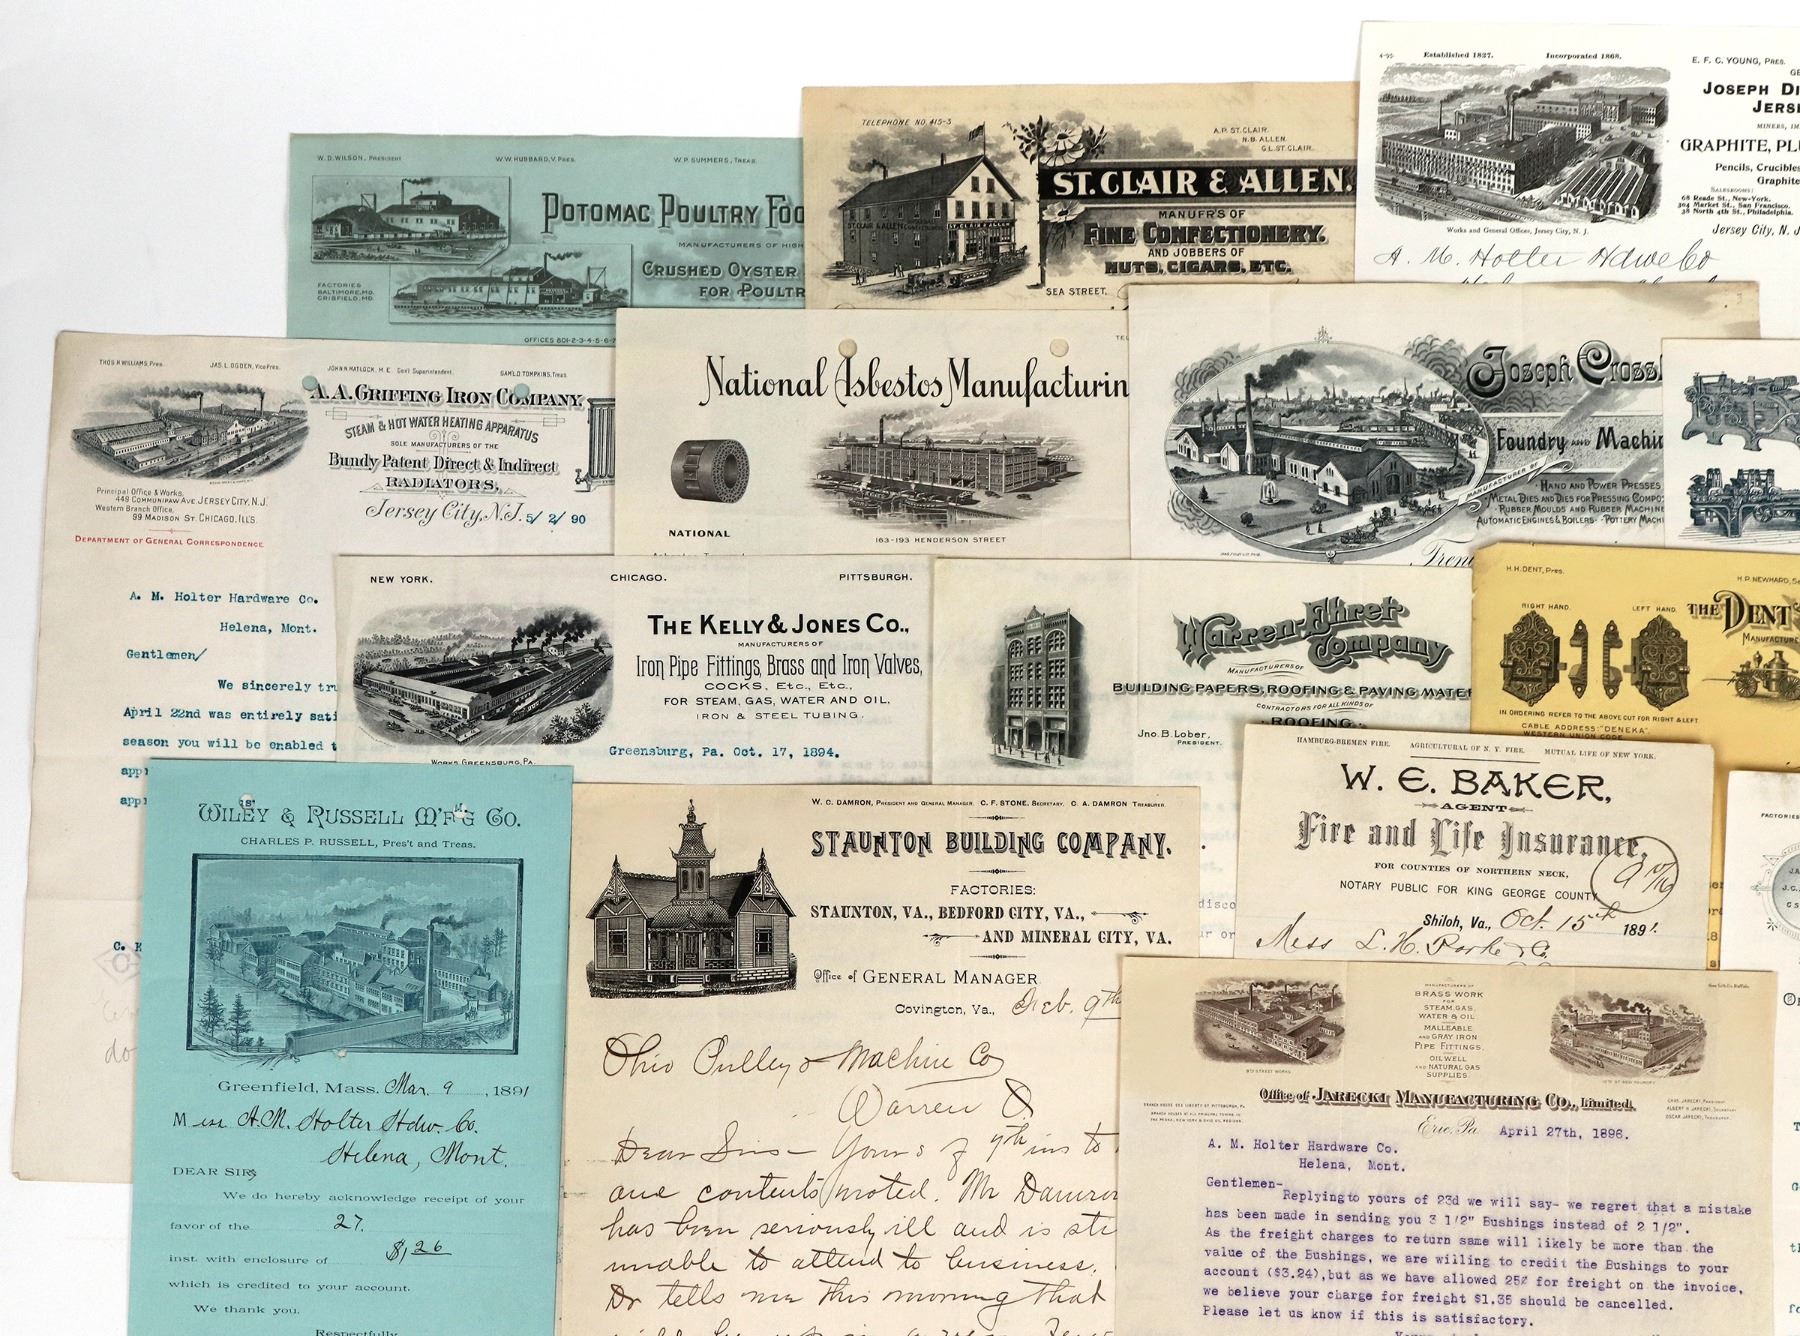 W. D. WILSON, PRESIDENT
W. W. HUBBARD, V. PRES.
W. P. SUMMERS, TREAS.
POTOMAC POULTRY FOO
MANUFACTURERS OF HIGH
CRUSHED OYSTER
FOR POULTR
FACTORIES
BALTIMORE, MD.
CRISFIELD, MD.
OFFICES 801-2-3-4-5-6-7
TELEPHONE NO. 415-3
A.P. ST. CLAIR.
N.B. ALLEN.
G.L. ST. CLAIR.
ST. CLAIR & ALLEN.
MANUF'R'S OF
FINE CONFECTIONERY.
AND JOBBERS OF
NUTS, CIGARS, ETC.
SEA STREET.
4-95.
Established 1827.
Incorporated 1868.
E. F. C. YOUNG, PRES.
JOSEPH DI
JERS
MINERS, IM
GRAPHITE, PLU
Pencils, Crucibles
Graphite
SALESROOMS:
68 Reade St., New-York.
304 Market St., San Francisco.
38 North 4th St., Philadelphia.
Works and General Offices, Jersey City, N. J.
Jersey City, N. J
A. M. Holter Hdwe Co
THOS. H. WILLIAMS, Pres.
JAS. L. OGDEN, Vice Pres.
JOHN N. MATLOCK, M. E. Gen'l Superintendent.
SAM'L D. TOMPKINS, Treas.
A. A. GRIFFING IRON COMPANY,
STEAM & HOT WATER HEATING APPARATUS
SOLE MANUFACTURERS OF THE
Bundy Patent Direct & Indirect
RADIATORS,
Principal Office & Works,
449 COMMUNIPAW AVE. JERSEY CITY, N. J.
Western Branch Office,
99 MADISON ST. CHICAGO, ILL'S.
Jersey City, N.J. 5/ 2/ 90
DEPARTMENT OF GENERAL CORRESPONDENCE.
A. M. Holter Hardware Co.
Helena, Mont.
Gentlemen/
We sincerely tru
April 22nd was entirely sati
season you will be enabled t
app
app
C. K
do
National Asbestos Manufacturin
NATIONAL
163-193 HENDERSON STREET
Joseph Cross
Foundry AND Machin
MANUFACTURER OF
HAND AND POWER PRESSES
METAL DIES AND DIES FOR PRESSING COMPO
RUBBER MOULDS AND RUBBER MACHINE
AUTOMATIC ENGINES & BOILERS - POTTERY MACH
Tren
NEW YORK.
CHICAGO.
PITTSBURGH.
THE KELLY & JONES CO.,
MANUFACTURERS OF
Iron Pipe Fittings, Brass and Iron Valves,
COCKS, Etc., Etc.,
FOR STEAM, GAS, WATER AND OIL,
IRON & STEEL TUBING.
Greensburg, Pa. Oct. 17, 1894.
WORKS, GREENSBURG, PA.
Warren-Ehret
Company
MANUFACTURERS OF
BUILDING PAPERS, ROOFING & PAVING MATE
CONTRACTORS FOR ALL KINDS OF
ROOFING.
Jno. B. Lober,
PRESIDENT.
H. H. DENT, Pres.
H. P. NEWHARD, Se
RIGHT HAND.
LEFT HAND.
THE DENT
MANUFACTURE
IN ORDERING REFER TO THE ABOVE CUT FOR RIGHT & LEFT.
CABLE ADDRESS: "DENEKA".
WESTERN UNION CODE
HAMBURG-BREMEN FIRE.
AGRICULTURAL OF N. Y. FIRE.
MUTUAL LIFE OF NEW YORK.
W. E. BAKER,
AGENT
Fire and Life Insurance,
FOR COUNTIES OF NORTHERN NECK,
NOTARY PUBLIC FOR KING GEORGE COUNTY
Shiloh, Va., Oct. 15th 1891.
FACTORIES
WILEY & RUSSELL M'F'G CO.
CHARLES P. RUSSELL, Pres't and Treas.
Greenfield, Mass. Mar. 9, 1891
Mess A.M. Holter Hdw. Co.
Helena, Mont.
DEAR SIRS
We do hereby acknowledge receipt of your
favor of the 27.
inst. with enclosure of $1,26
which is credited to your account.
We thank you.
Respectfully
W. C. DAMRON, PRESIDENT AND GENERAL MANAGER. C. F. STONE, SECRETARY. C. A. DAMRON TREASURER.
STAUNTON BUILDING COMPANY.
FACTORIES:
STAUNTON, VA., BEDFORD CITY, VA.,
AND MINERAL CITY, VA.
Office of GENERAL MANAGER
Covington, Va., Feb. 9th
Ohio Pulley & Machine Co
Warren O.
Dear Sirs - Yours of 7th ins to
and contents noted. Mr Damron
has been seriously ill and is sti
unable to attend to business.
Dr tells me this morning that
disco
ur or
MANUFACTURERS OF
BRASS WORK
FOR
STEAM, GAS,
WATER & OIL
MALLEABLE
AND GRAY IRON
PIPE FITTINGS.
OIL WELL
AND NATURAL GAS
SUPPLIES.
9TH STREET WORKS
Office of JARECKI MANUFACTURING CO., Limited.
CHAS. JARECKI, PRESIDENT
ALBERT H. JARECKI, SECRETARY
OSCAR JARECKI, TREASURER.
Erie, Pa. April 27th, 1896.
A. M. Holter Hardware Co.
Helena, Mont.
Gentlemen-
Replying to yours of 23d we will say- we regret that a mistake
has been made in sending you 3 1/2" Bushings instead of 2 1/2".
As the freight charges to return same will likely be more than the
value of the Bushings, we are willing to credit the Bushings to your
account ($3.24), but as we have allowed 25¢ for freight on the invoice,
we believe your charge for freight $1.35 should be cancelled.
Please let us know if this is satisfactory.